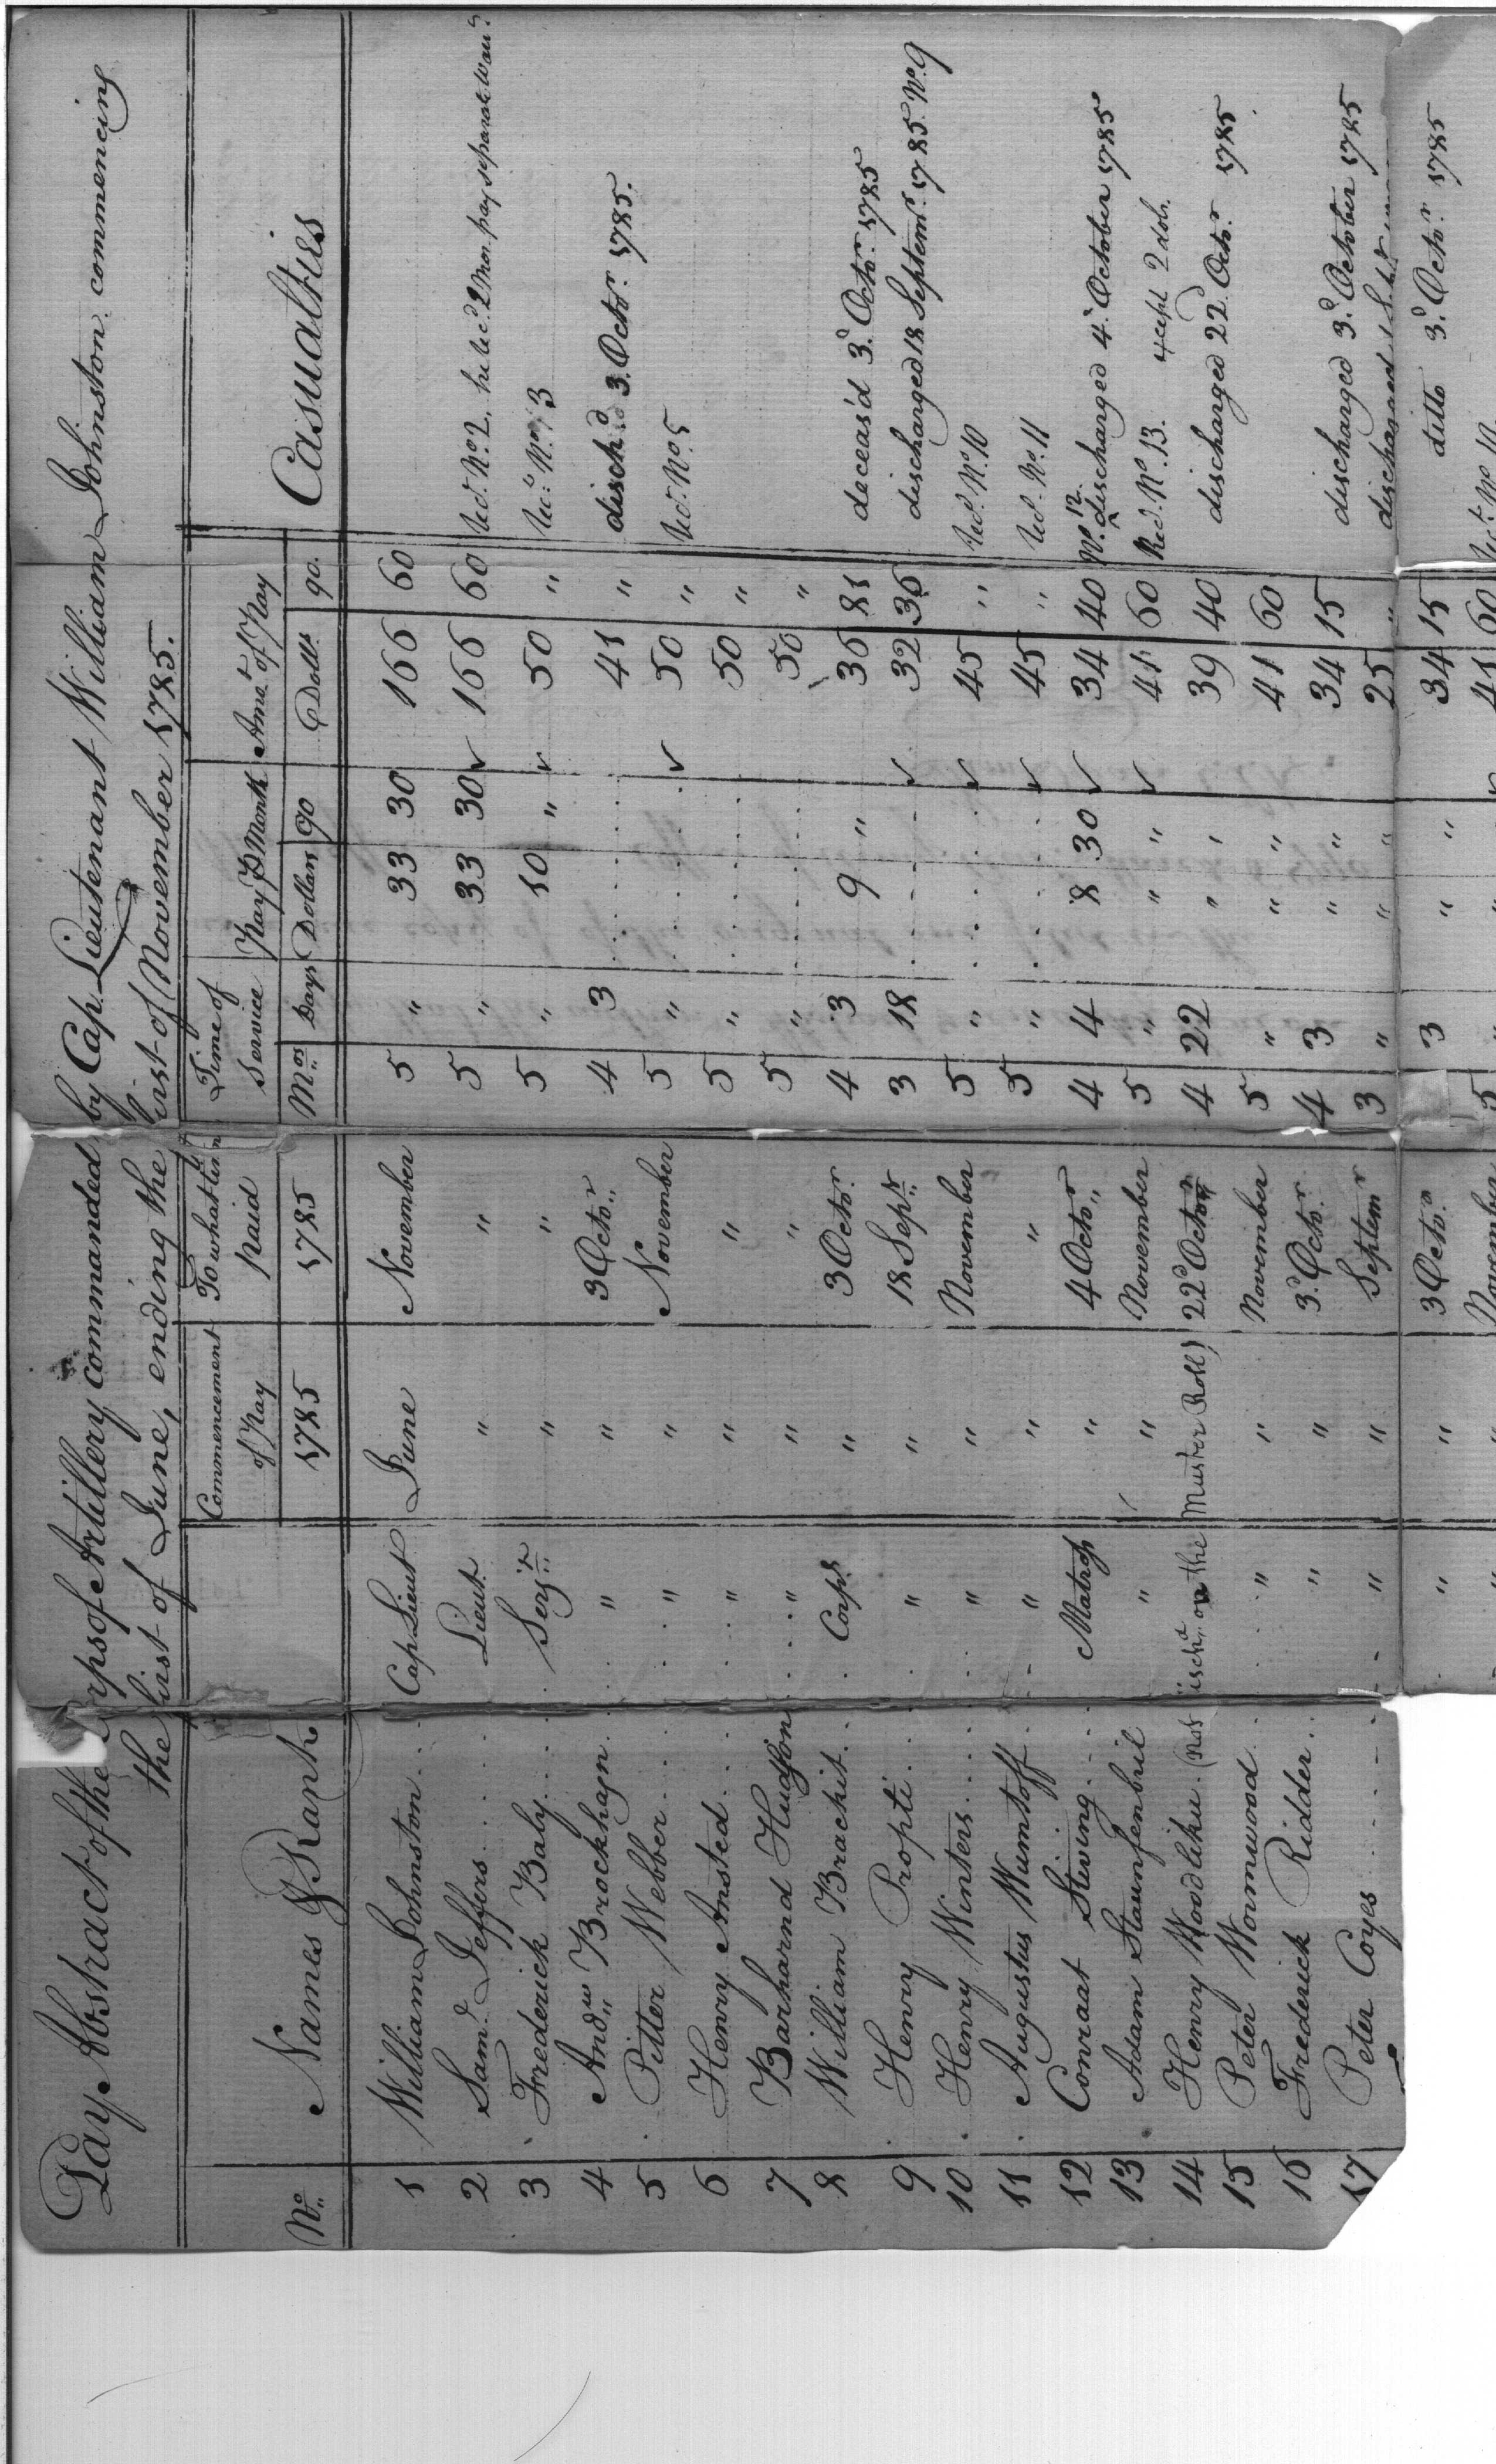 Pay Abstract of the Corps of Artillery commanded by Cap. Lieutenant William Johnston commencing
the first of June, ending the first of November 1785.
No. Names & Rank Commencement of Pay 1785 To what time paid 1785 Time of Service Mos Days Pay P Month Dollars 90 Amot. of Pay Dollrs. 90. Casualties
1 William Johnston Cap Lieut June November 5 " 33 30 166 60
2 Saml. Jeffers Lieut. " " 5 " 33 30 166 60 Recd. No. 2, he recd. 2 Mon. pay separate
3 Frederick Baly Serjt " " 5 " 10 " 50 " Recd. No. 3
4 Andw Brockhayn " " 3 Octor 4 3 41 " dischd 3. Octor. 1785.
5 Pitter Webber " " November 5 " 50 " Recd. No. 5
6 Henry Ansted " " " 5 " 50 "
7 Barharnd Hudson " " " 5 " 50 "
8 William Brachit Corpl " 3 Octor 4 3 9 " 36 81 deceas'd 3d. Octor. 1785
9 Henry Propti " " 18 Septr 3 18 32 36 discharged 18 Septemr. 1785. No. 9
10 Henry Winters " " November 5 " 45 " Recd. No. 10
11 Augustus Wumtoff " " " 5 " 45 " Recd. No. 11
12 Conraat Stiving Matross " 4 Octor 4 4 8 30 34 40 No. 12 discharged 4. October 1785
13 Adam Staunfenbril " " November 5 " " " 41 60 Recd. No. 13. except 2 dols.
14 Henry Woodliku (Not dischd on the Muster Roll) 22d Octor 4 22 " " 39 40 discharged 22d. Octor. 1785.
15 Peter Wormwood " " November 5 " " " 41 60
16 Frederick Ridder " " 3d. Octor. 4 3 " " 34 15 discharged 3d. October 1785
17 Peter Coyes " " Septemr 3 " " " 25 " discharged 1
" " 3 Octor. 3 " " 34 15 ditto 3d. Octor. 1785
" " November 5 " " " 41 60